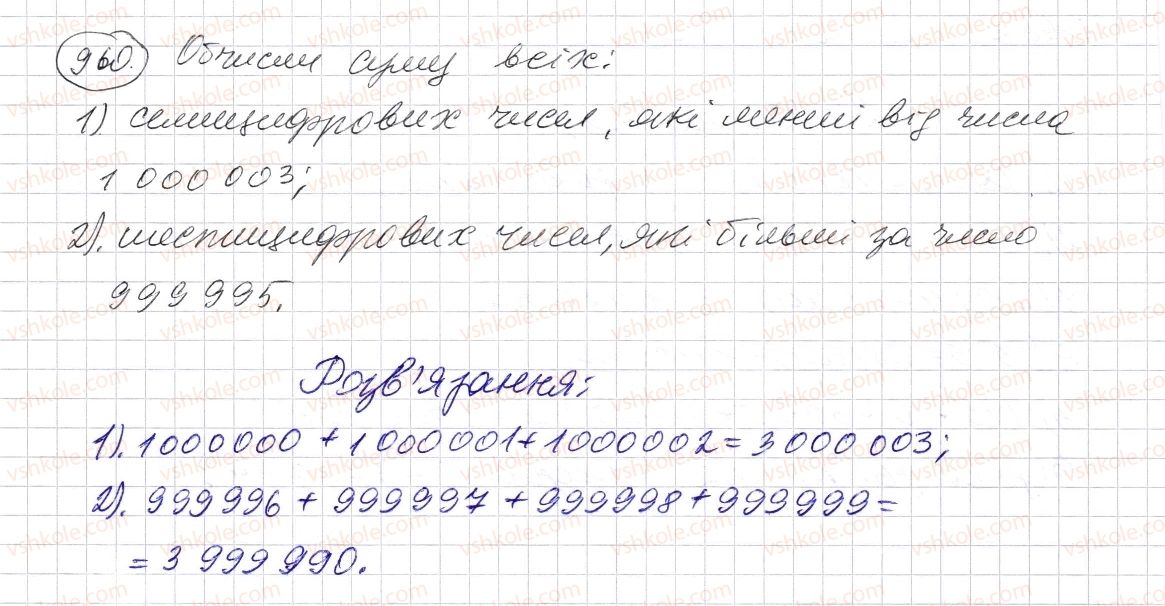 960. Обчисли суму всіх:
1) семицифрових чисел, які менші від числа
1 000 003;
2). шестицифрових чисел, які більші за число
999 995.
Розв'язання:
1). 1000000 + 1 000001 + 1000002 = 3 000 003;
2). 999996 + 999997 + 999998 + 999999 =
= 3 999 990.